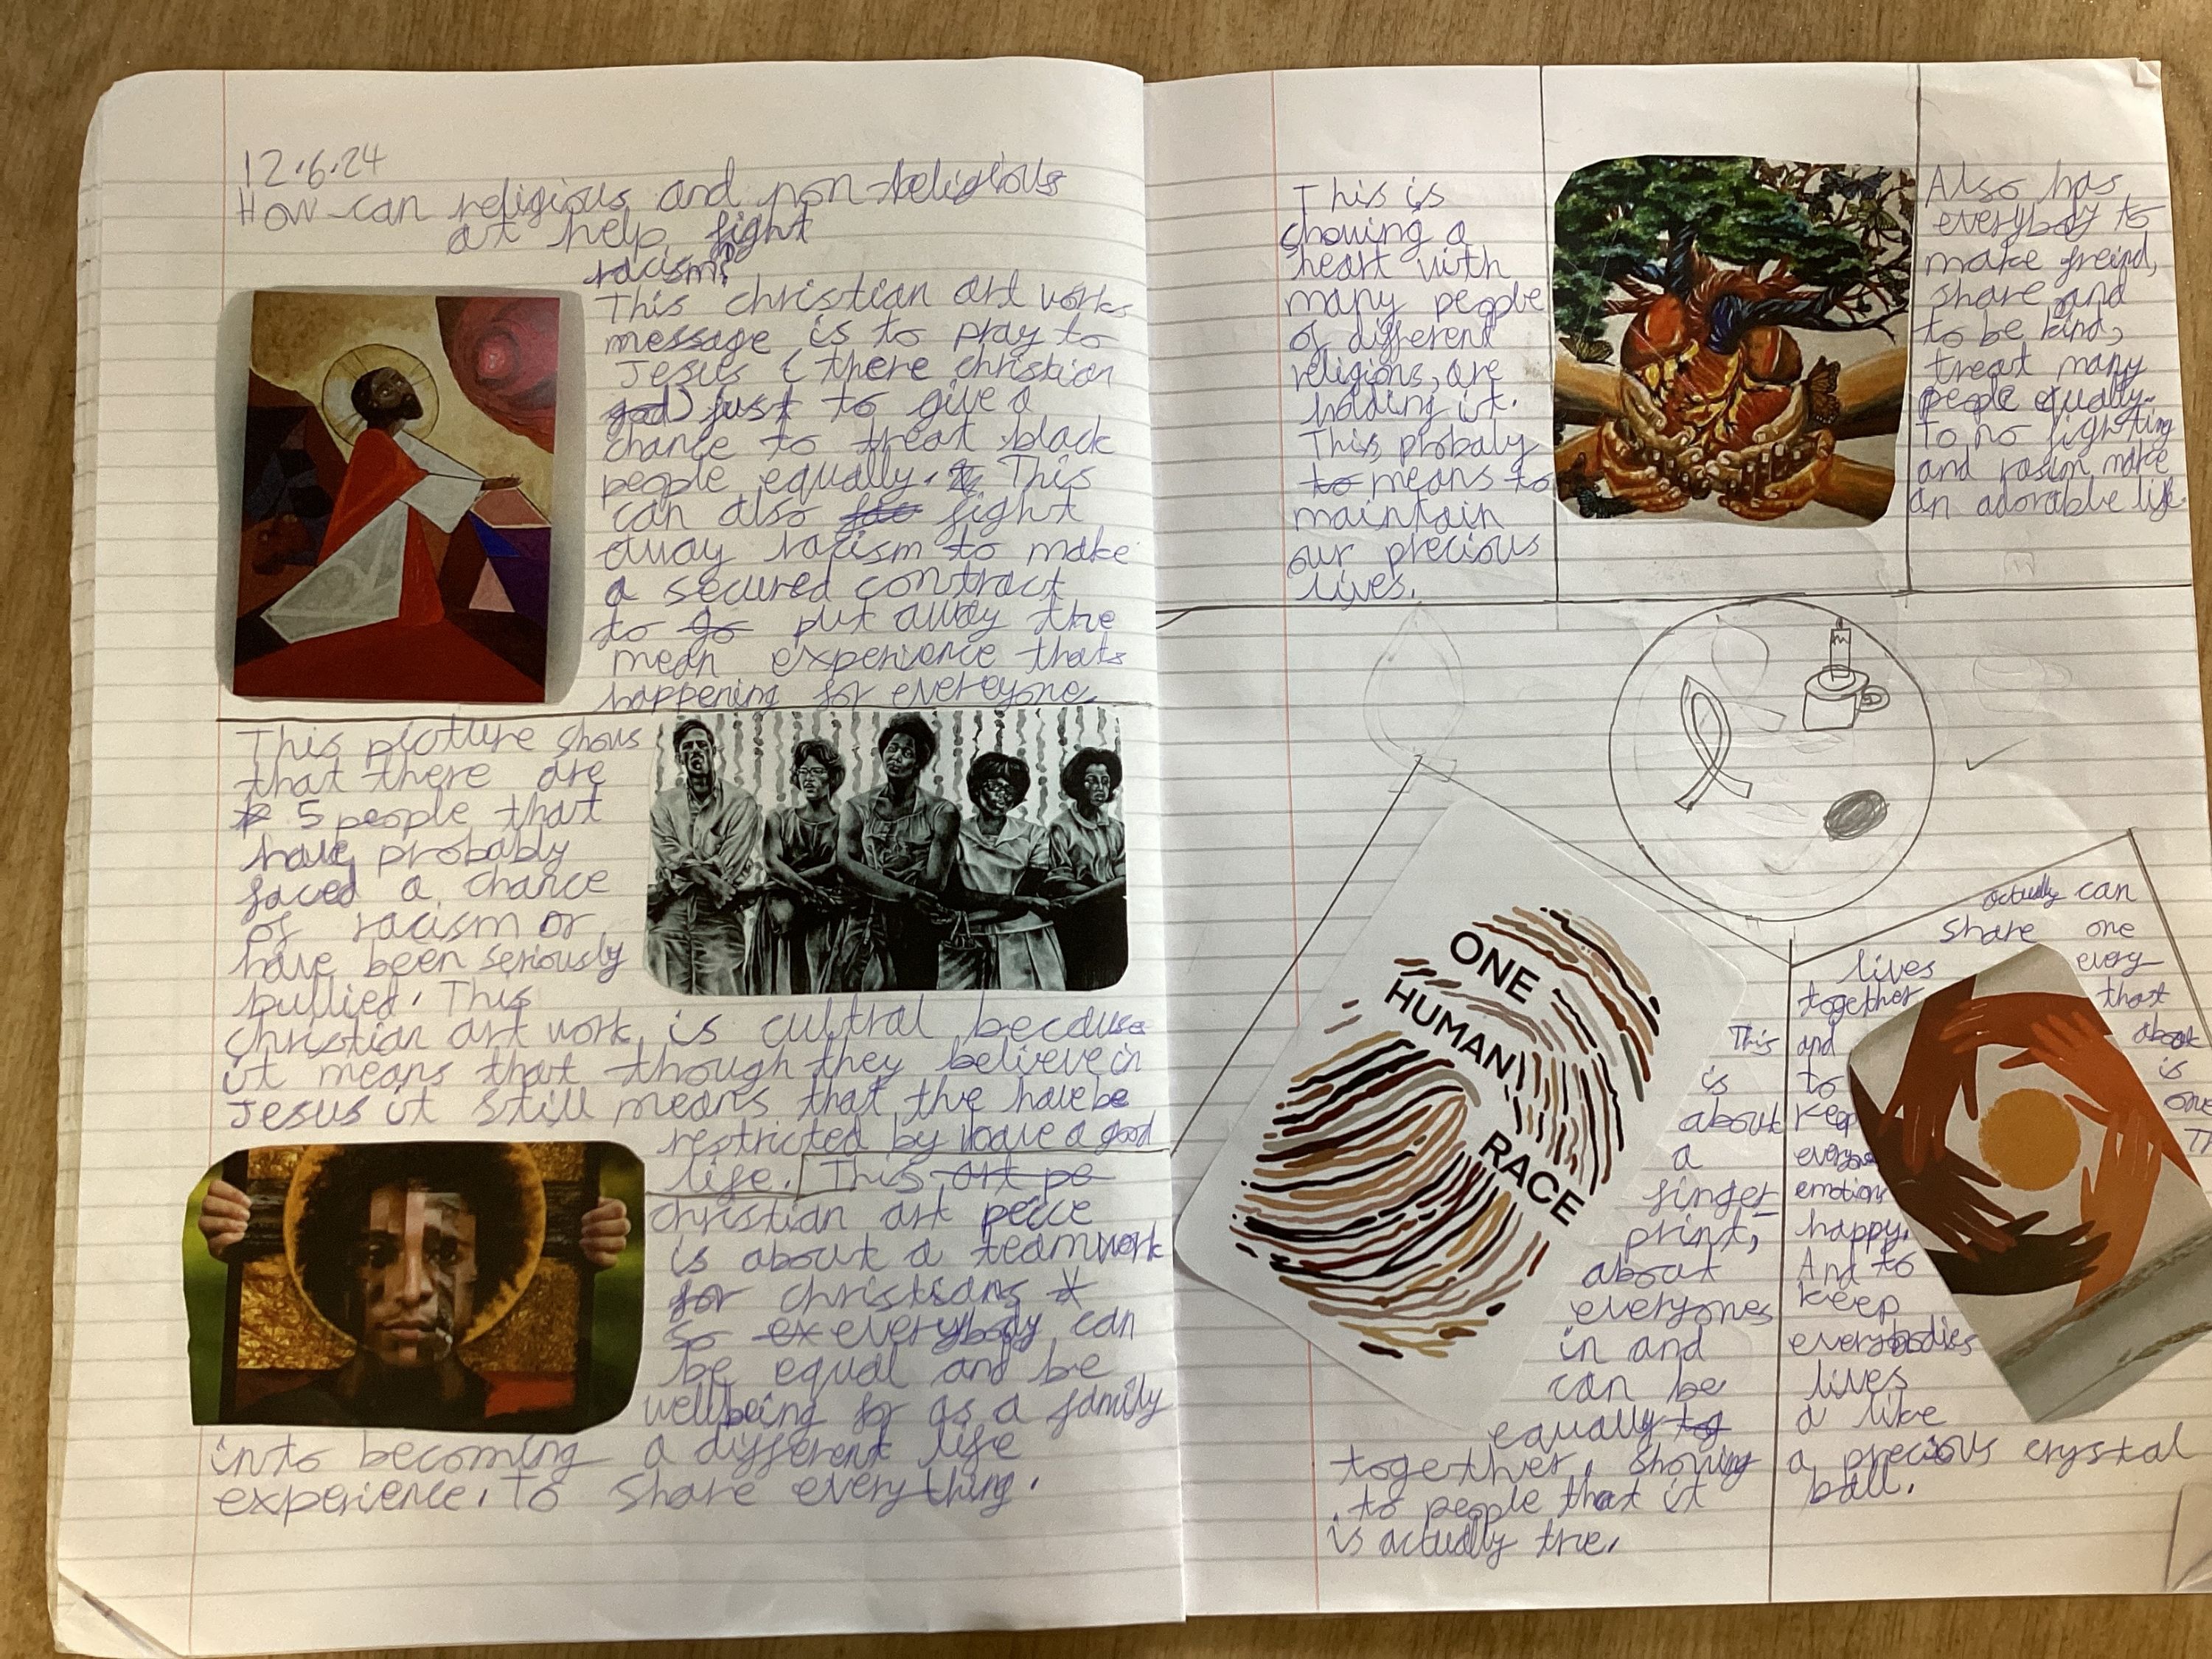 12.6.24
How can religious and non-religious
at help fight
racism?
This christian art works
message is to pray to
Jesus ( there christian
god) just to give a
chance to treat black
people equally. This
can also fight
away racism to make
a secured contract
to go put away the
mean experience thats
happening for everyone.
This picture shows
that there are
5 people that
have probably
faced a chance
of racism or
have been seriously
bullied. This
christian art work is cultral because
it means that though they believe in
Jesus it still means that the have be
restricted by have a good
life. This art pe
christian art peice
is about a teamwork
for christians
so ex everybody can
be equal and be
wellbeing for as a family
into becoming a different life
experience. To share everything.
This is
showing a
heart with
many people
of different
religions, are
holding it.
This, probaly
to means to
maintain
our precious
lives.
Also has
everybody to
make freind,
share and
to be kind,
treat many
people equally.
To no fighting
and rasism make
an adorable life.
ONE
HUMAN
RACE
This
is
about
a
finger
print,
about
everyones
in and
can be
equally to
together. showing
to people that it
is actually true.
one
is
about
that
every
share one
actually can
lives
together
and
to
keep
everyone
emotions
happy.
And to
keep
everybodies
lives
a like
a precious crystal
ball.